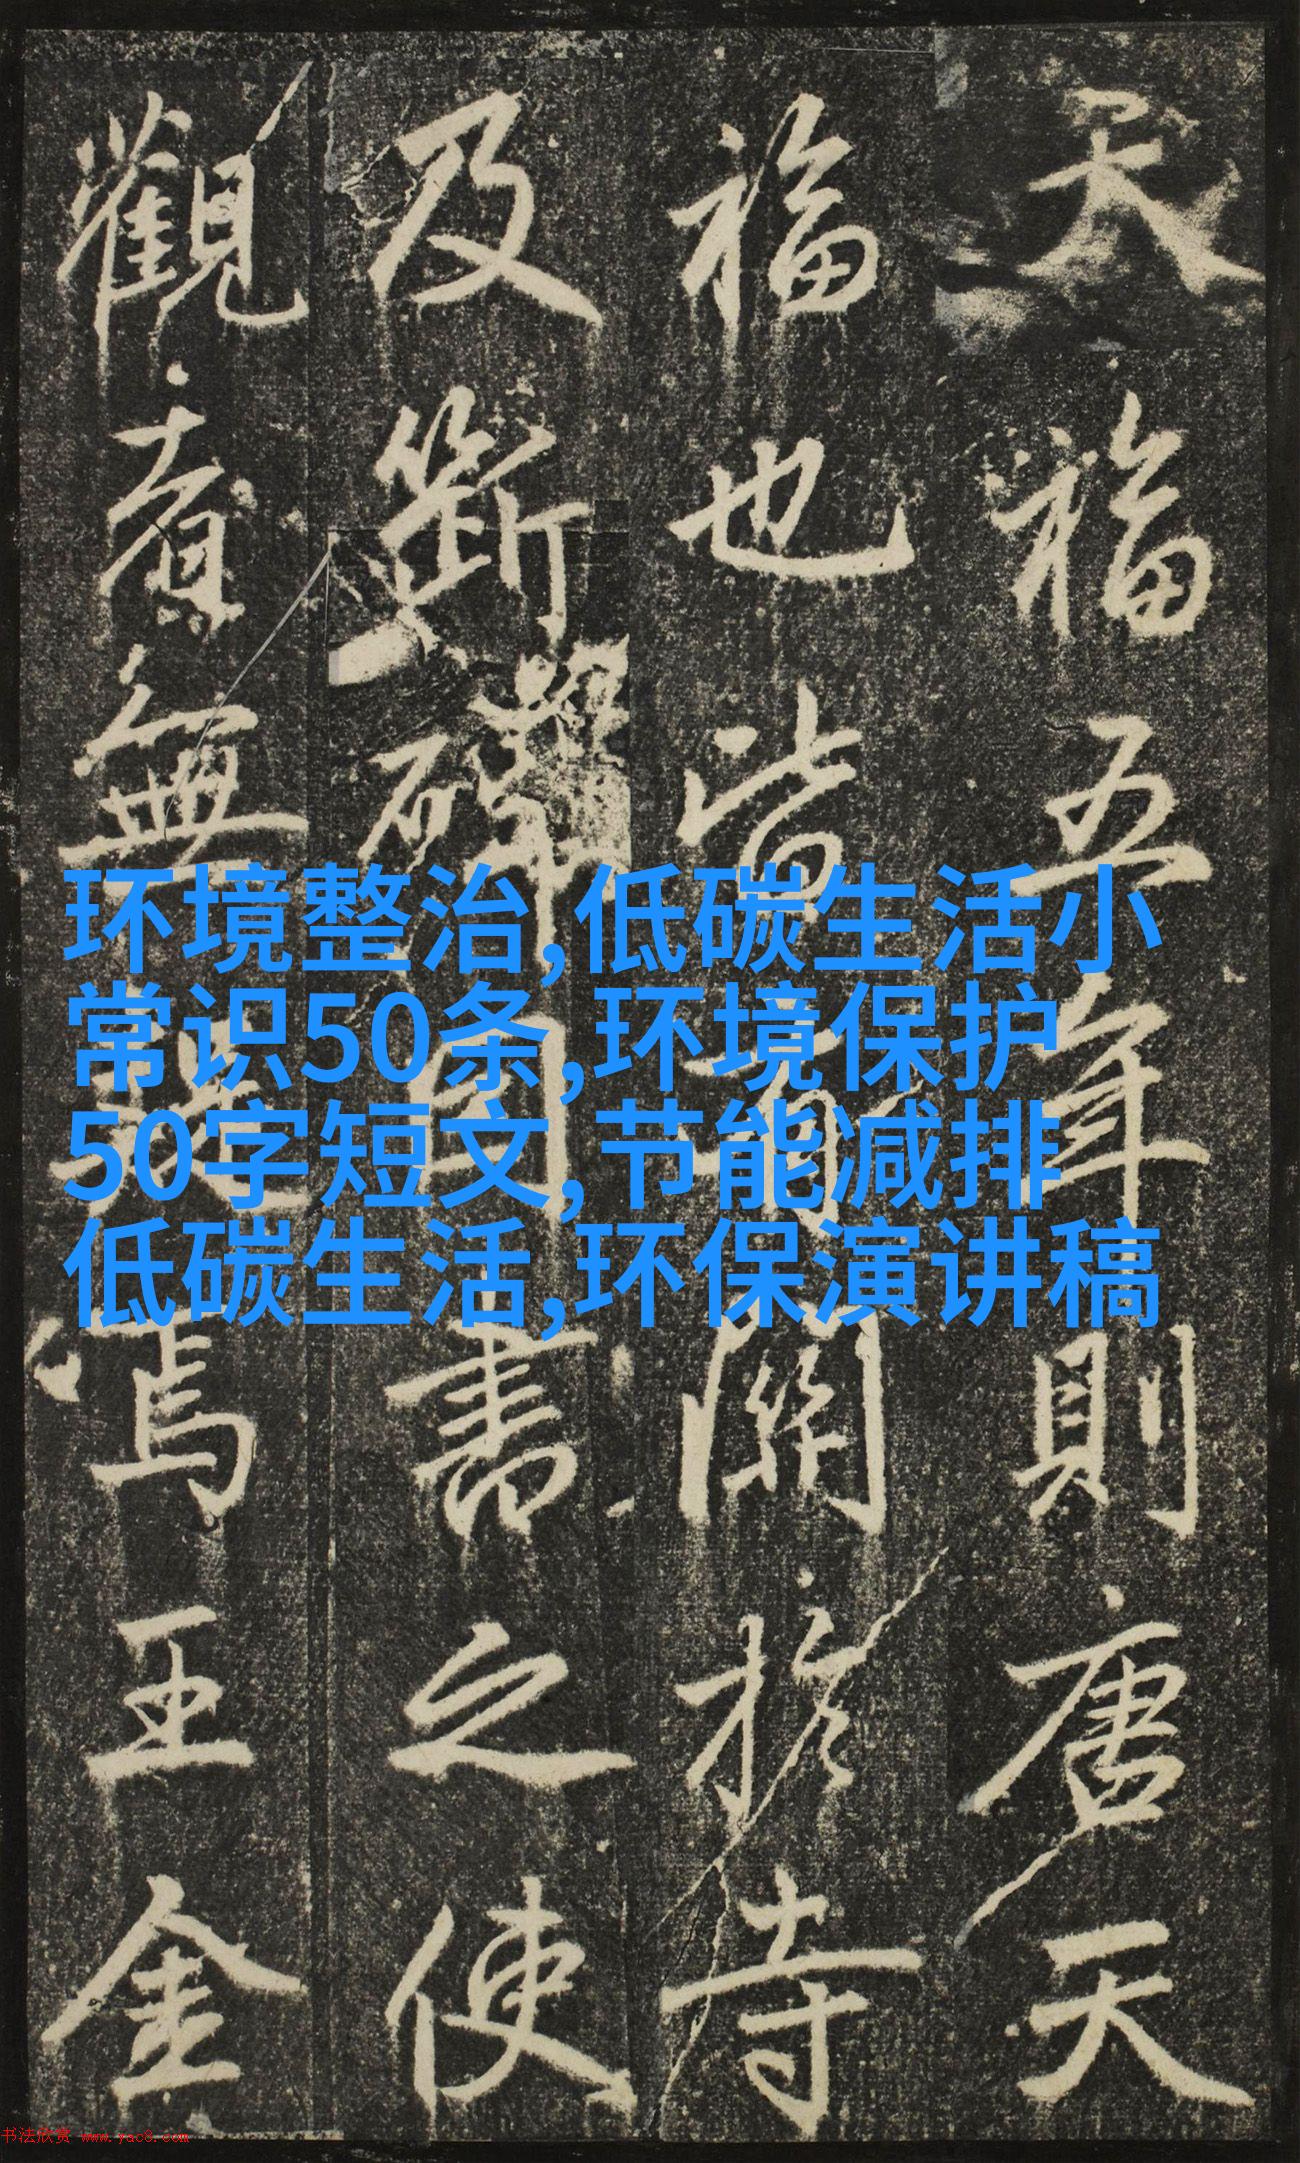 天福五年則唐天
福也皆有關於寺
及斷碑因書之使
觀音無 焉王金
环境整治,低碳生活小
常识50条,环境保护
50字短文,节能减排
低碳生活,环保演讲稿
书法欣赏 www.yac8.com